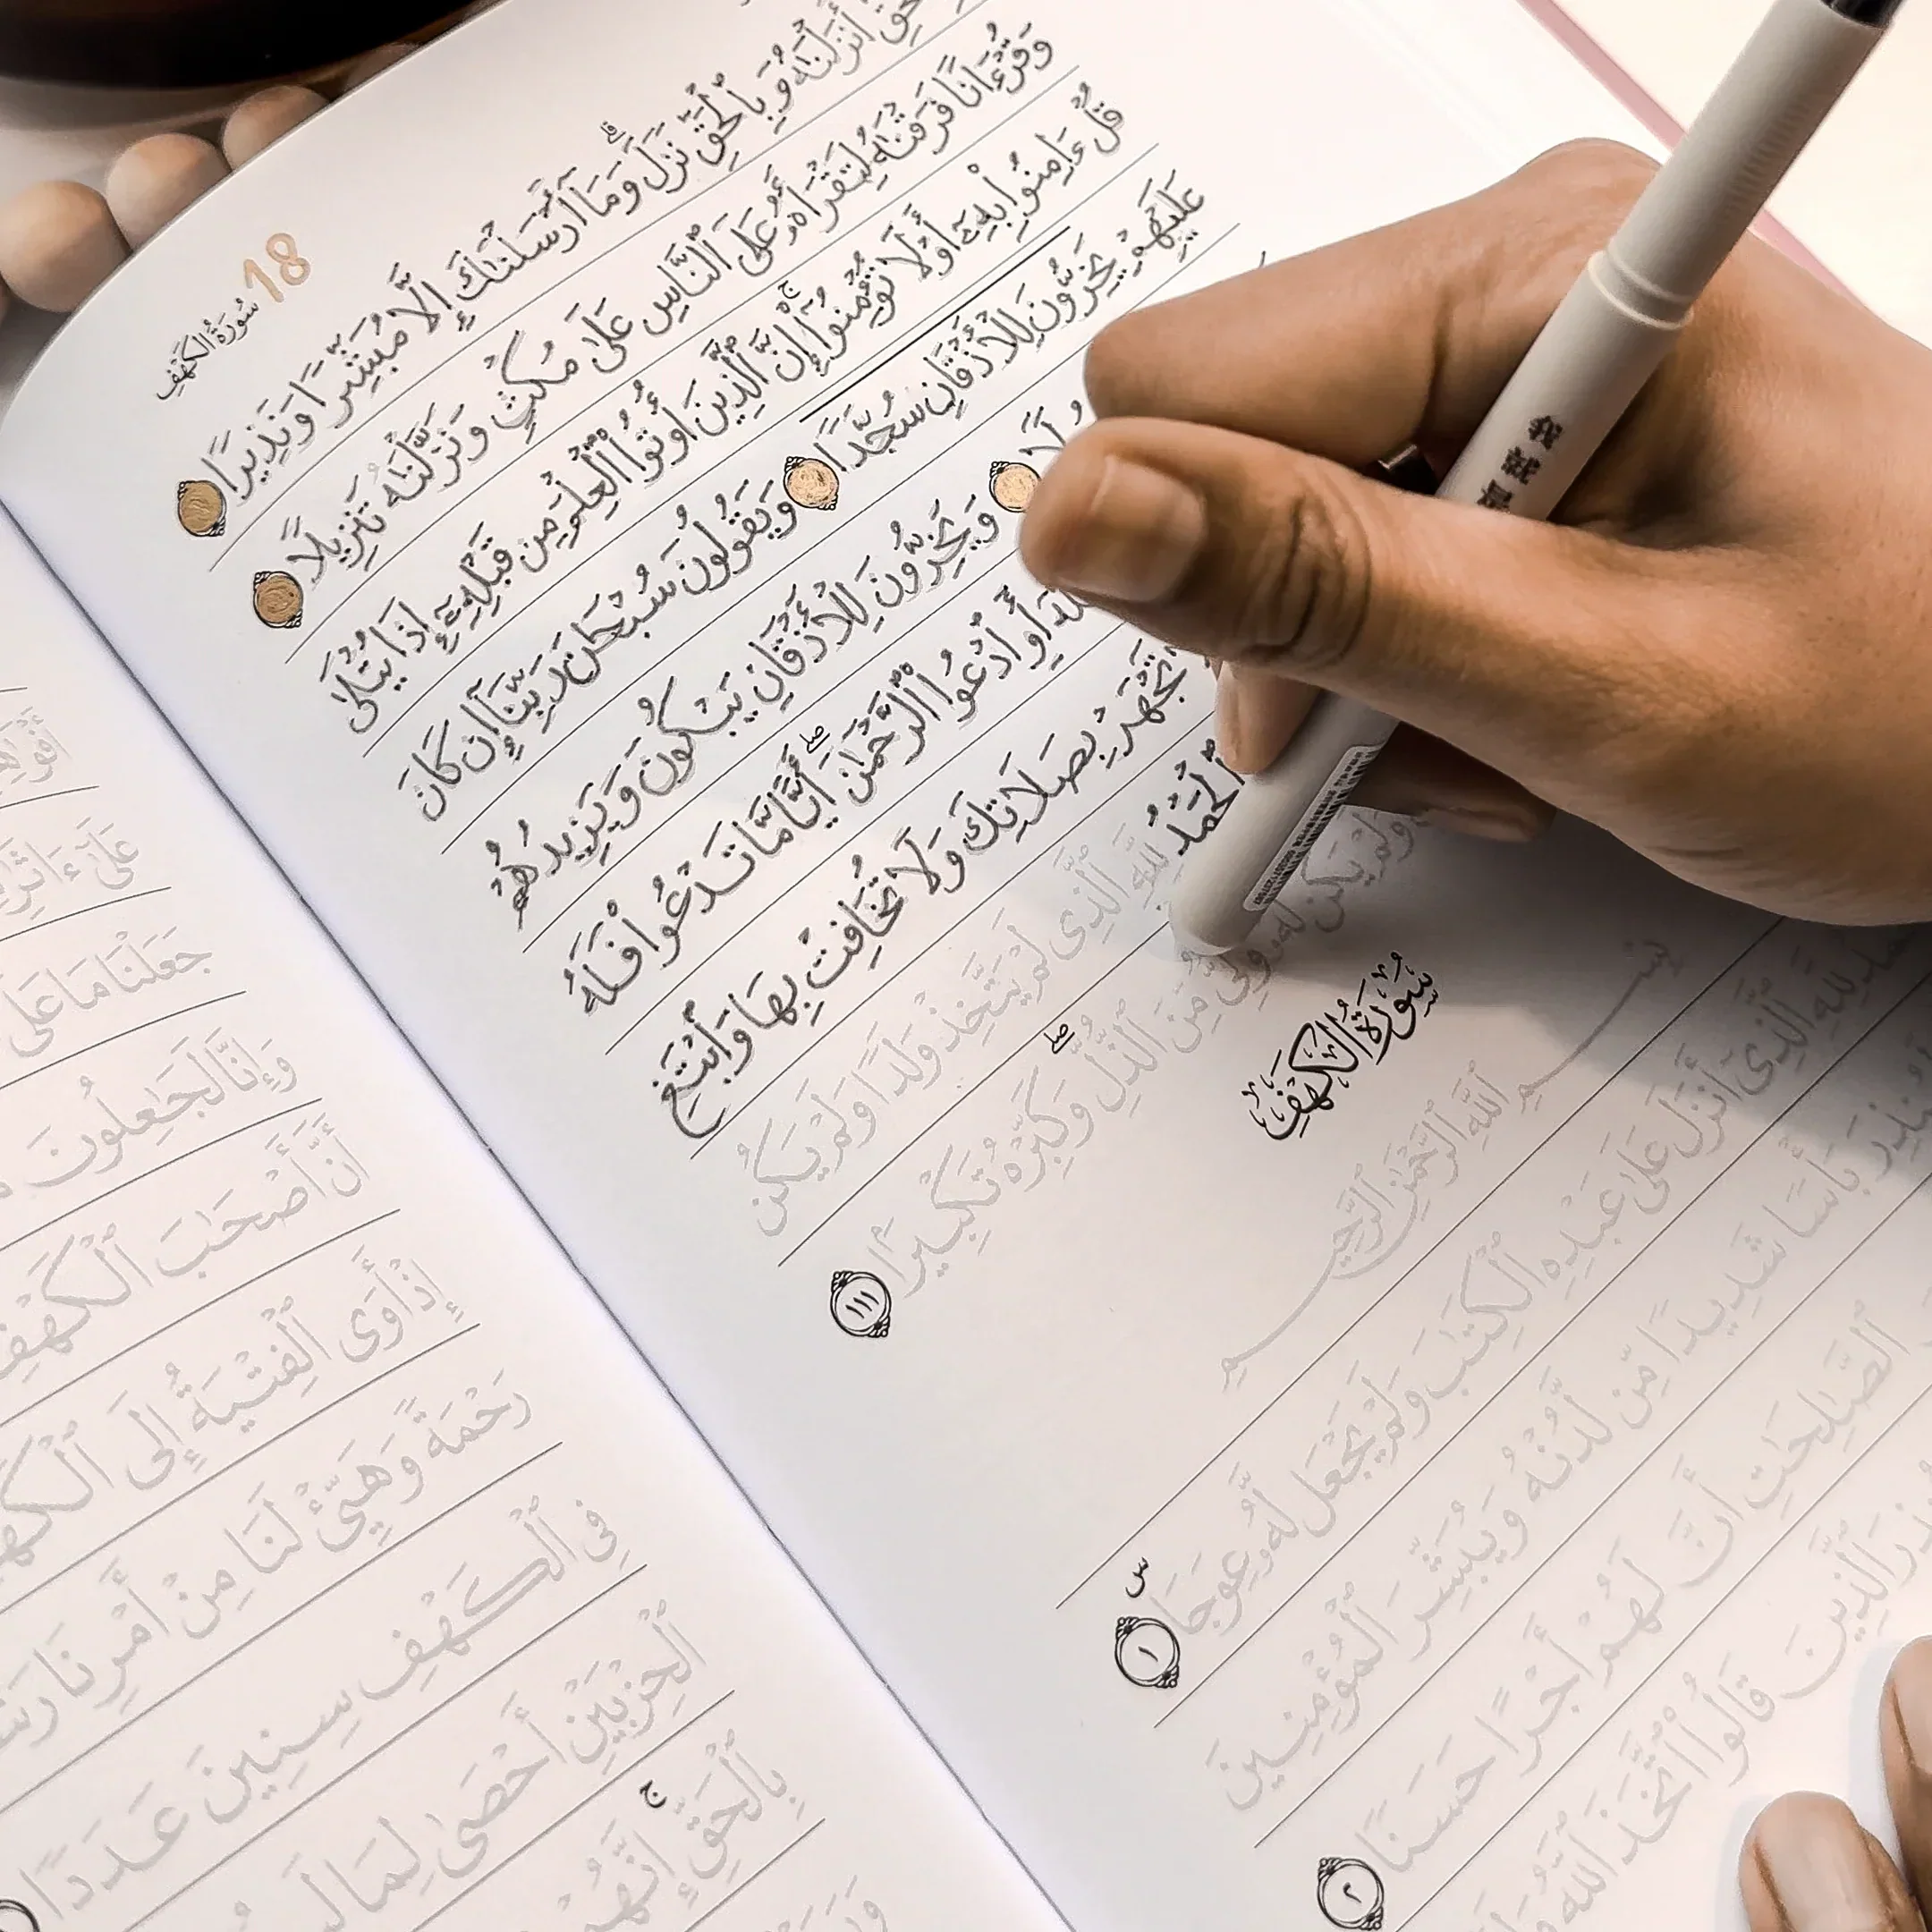 18
سُورَةُ الكَهْفِ
أَنزَلْنَٰهُ وَبِٱلْحَقِّ نَزَلَ ۗ وَمَآ أَرْسَلْنَٰكَ إِلَّا مُبَشِّرًا وَنَذِيرًا
وَقُرْءَانًا فَرَقْنَٰهُ لِتَقْرَأَهُۥ عَلَى ٱلنَّاسِ عَلَىٰ مُكْثٍ وَنَزَّلْنَٰهُ تَنزِيلًا
قُلْ ءَامِنُوا۟ بِهِۦٓ أَوْ لَا تُؤْمِنُوٓا۟ ۚ إِنَّ ٱلَّذِينَ أُوتُوا۟ ٱلْعِلْمَ مِن قَبْلِهِۦٓ إِذَا يُتْلَىٰ
عَلَيْهِمْ يَخِرُّونَ لِلْأَذْقَانِ سُجَّدًا وَيَقُولُونَ سُبْحَٰنَ رَبِّنَآ إِن كَانَ
وَيَخِرُّونَ لِلْأَذْقَانِ يَبْكُونَ وَيَزِيدُهُمْ
أَوِ ٱدْعُوا۟ ٱلرَّحْمَٰنَ ۖ أَيًّا مَّا تَدْعُوا۟ فَلَهُ
تَجْهَرْ بِصَلَاتِكَ وَلَا تُخَافِتْ بِهَا وَٱبْتَغِ
ٱلْحَمْدُ لِلَّهِ ٱلَّذِى لَمْ يَتَّخِذْ وَلَدًا وَلَمْ يَكُن
وَلَمْ يَكُن لَّهُۥ وَلِىٌّ مِّنَ ٱلذُّلِّ ۖ وَكَبِّرْهُ تَكْبِيرًۢا ١١١
سُورَةُ الكَهْفِ
بِسْمِ ٱللَّهِ ٱلرَّحْمَٰنِ ٱلرَّحِيمِ
لِلَّهِ ٱلَّذِىٓ أَنزَلَ عَلَىٰ عَبْدِهِ ٱلْكِتَٰبَ وَلَمْ يَجْعَل لَّهُۥ عِوَجَا ۜ ١
بَأْسًا شَدِيدًا مِّن لَّدُنْهُ وَيُبَشِّرَ ٱلْمُؤْمِنِينَ
ٱلصَّٰلِحَٰتِ أَنَّ لَهُمْ أَجْرًا حَسَنًا ٢
ٱلَّذِينَ قَالُوا۟ ٱتَّخَذَ ٱللَّهُ
عَلَىٰٓ
جَعَلْنَا مَا عَلَى
وَإِنَّا لَجَٰعِلُونَ
أَنَّ أَصْحَٰبَ ٱلْكَهْفِ
إِذْ أَوَى ٱلْفِتْيَةُ إِلَى
رَحْمَةً وَهَيِّئْ لَنَا مِنْ أَمْرِنَا
فِى ٱلْكَهْفِ سِنِينَ عَدَدًا
ٱلْحِزْبَيْنِ أَحْصَىٰ لِمَا
بِٱلْحَقِّ ۚ إِنَّهُمْ